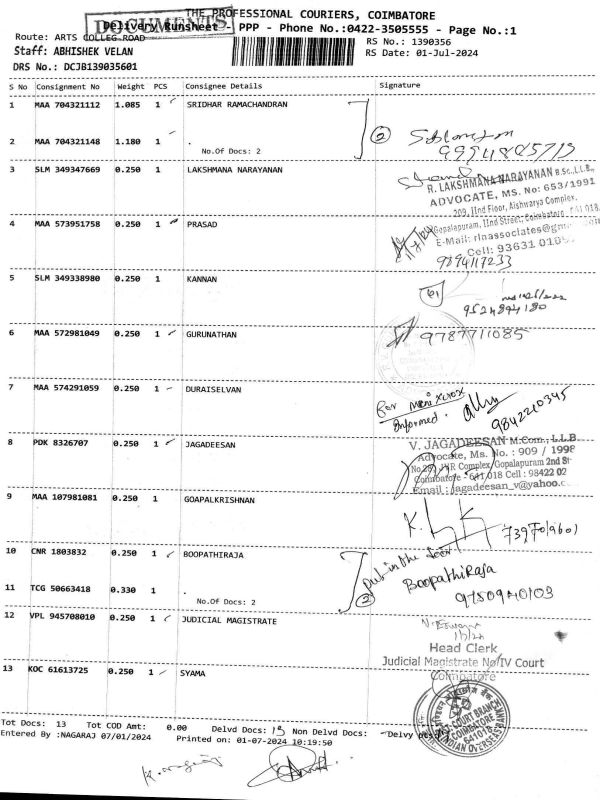 THE PROFESSIONAL COURIERS, COIMBATORE
DOCUMENTS
Delivery Runsheet - PPP - Phone No.:0422-3505555 - Page No.:1
Route: ARTS COLLEG ROAD
RS No.: 1390356
Staff: ABHISHEK VELAN
RS Date: 01-Jul-2024
DRS No.: DCJB139035601
S No Consignment No Weight PCS Consignee Details Signature
1 MAA 704321112 1.085 1 SRIDHAR RAMACHANDRAN
2 MAA 704321148 1.180 1 .
No.Of Docs: 2
2
3 SLM 349347669 0.250 1 LAKSHMANA NARAYANAN
R. LAKSHMANA NARAYANAN B.Sc.,L.L.B.,
ADVOCATE, MS. No: 653/1991
209, IInd Floor, Aishwarya Complex,
Gopalapuram, IInd Street, Coimbatore
E-Mail: rlnassociates@
Cell: 93631
4 MAA 573951758 0.250 1 PRASAD
9894117233
5 SLM 349338980 0.250 1 KANNAN
6 MAA 572981049 0.250 1 GURUNATHAN
9787711085
7 MAA 574291059 0.250 1 DURAISELVAN
For
Informed.
9842210345
8 PDK 8326707 0.250 1 JAGADEESAN
V. JAGADEESAN M.Com., L.L.B.
Advocate, Ms. No. : 909 / 1998
Complex, Gopalapuram 2nd St
Coimbatore - 641 018 Cell : 98422 02
Email : jagadeesan_v@yahoo.c
9 MAA 107981081 0.250 1 GOAPALKRISHNAN
10 CNR 1803832 0.250 1 BOOPATHIRAJA
put in the door
BoopathiRaja
9750940103
11 TCG 50663418 0.330 1 .
No.Of Docs: 2
2
12 VPL 945708010 0.250 1 JUDICIAL MAGISTRATE
Head Clerk
Judicial Magistrate No/IV Court
Coimbatore
13 KOC 61613725 0.250 1 SYAMA
COURT BRANCH
COIMBATORE
641018
INDIAN OVERSEAS BANK
Tot Docs: 13 Tot COD Amt: 0.00 Delvd Docs: 13 Non Delvd Docs: - Delvy
Entered By :NAGARAJ 07/01/2024 Printed on: 01-07-2024 10:19:50